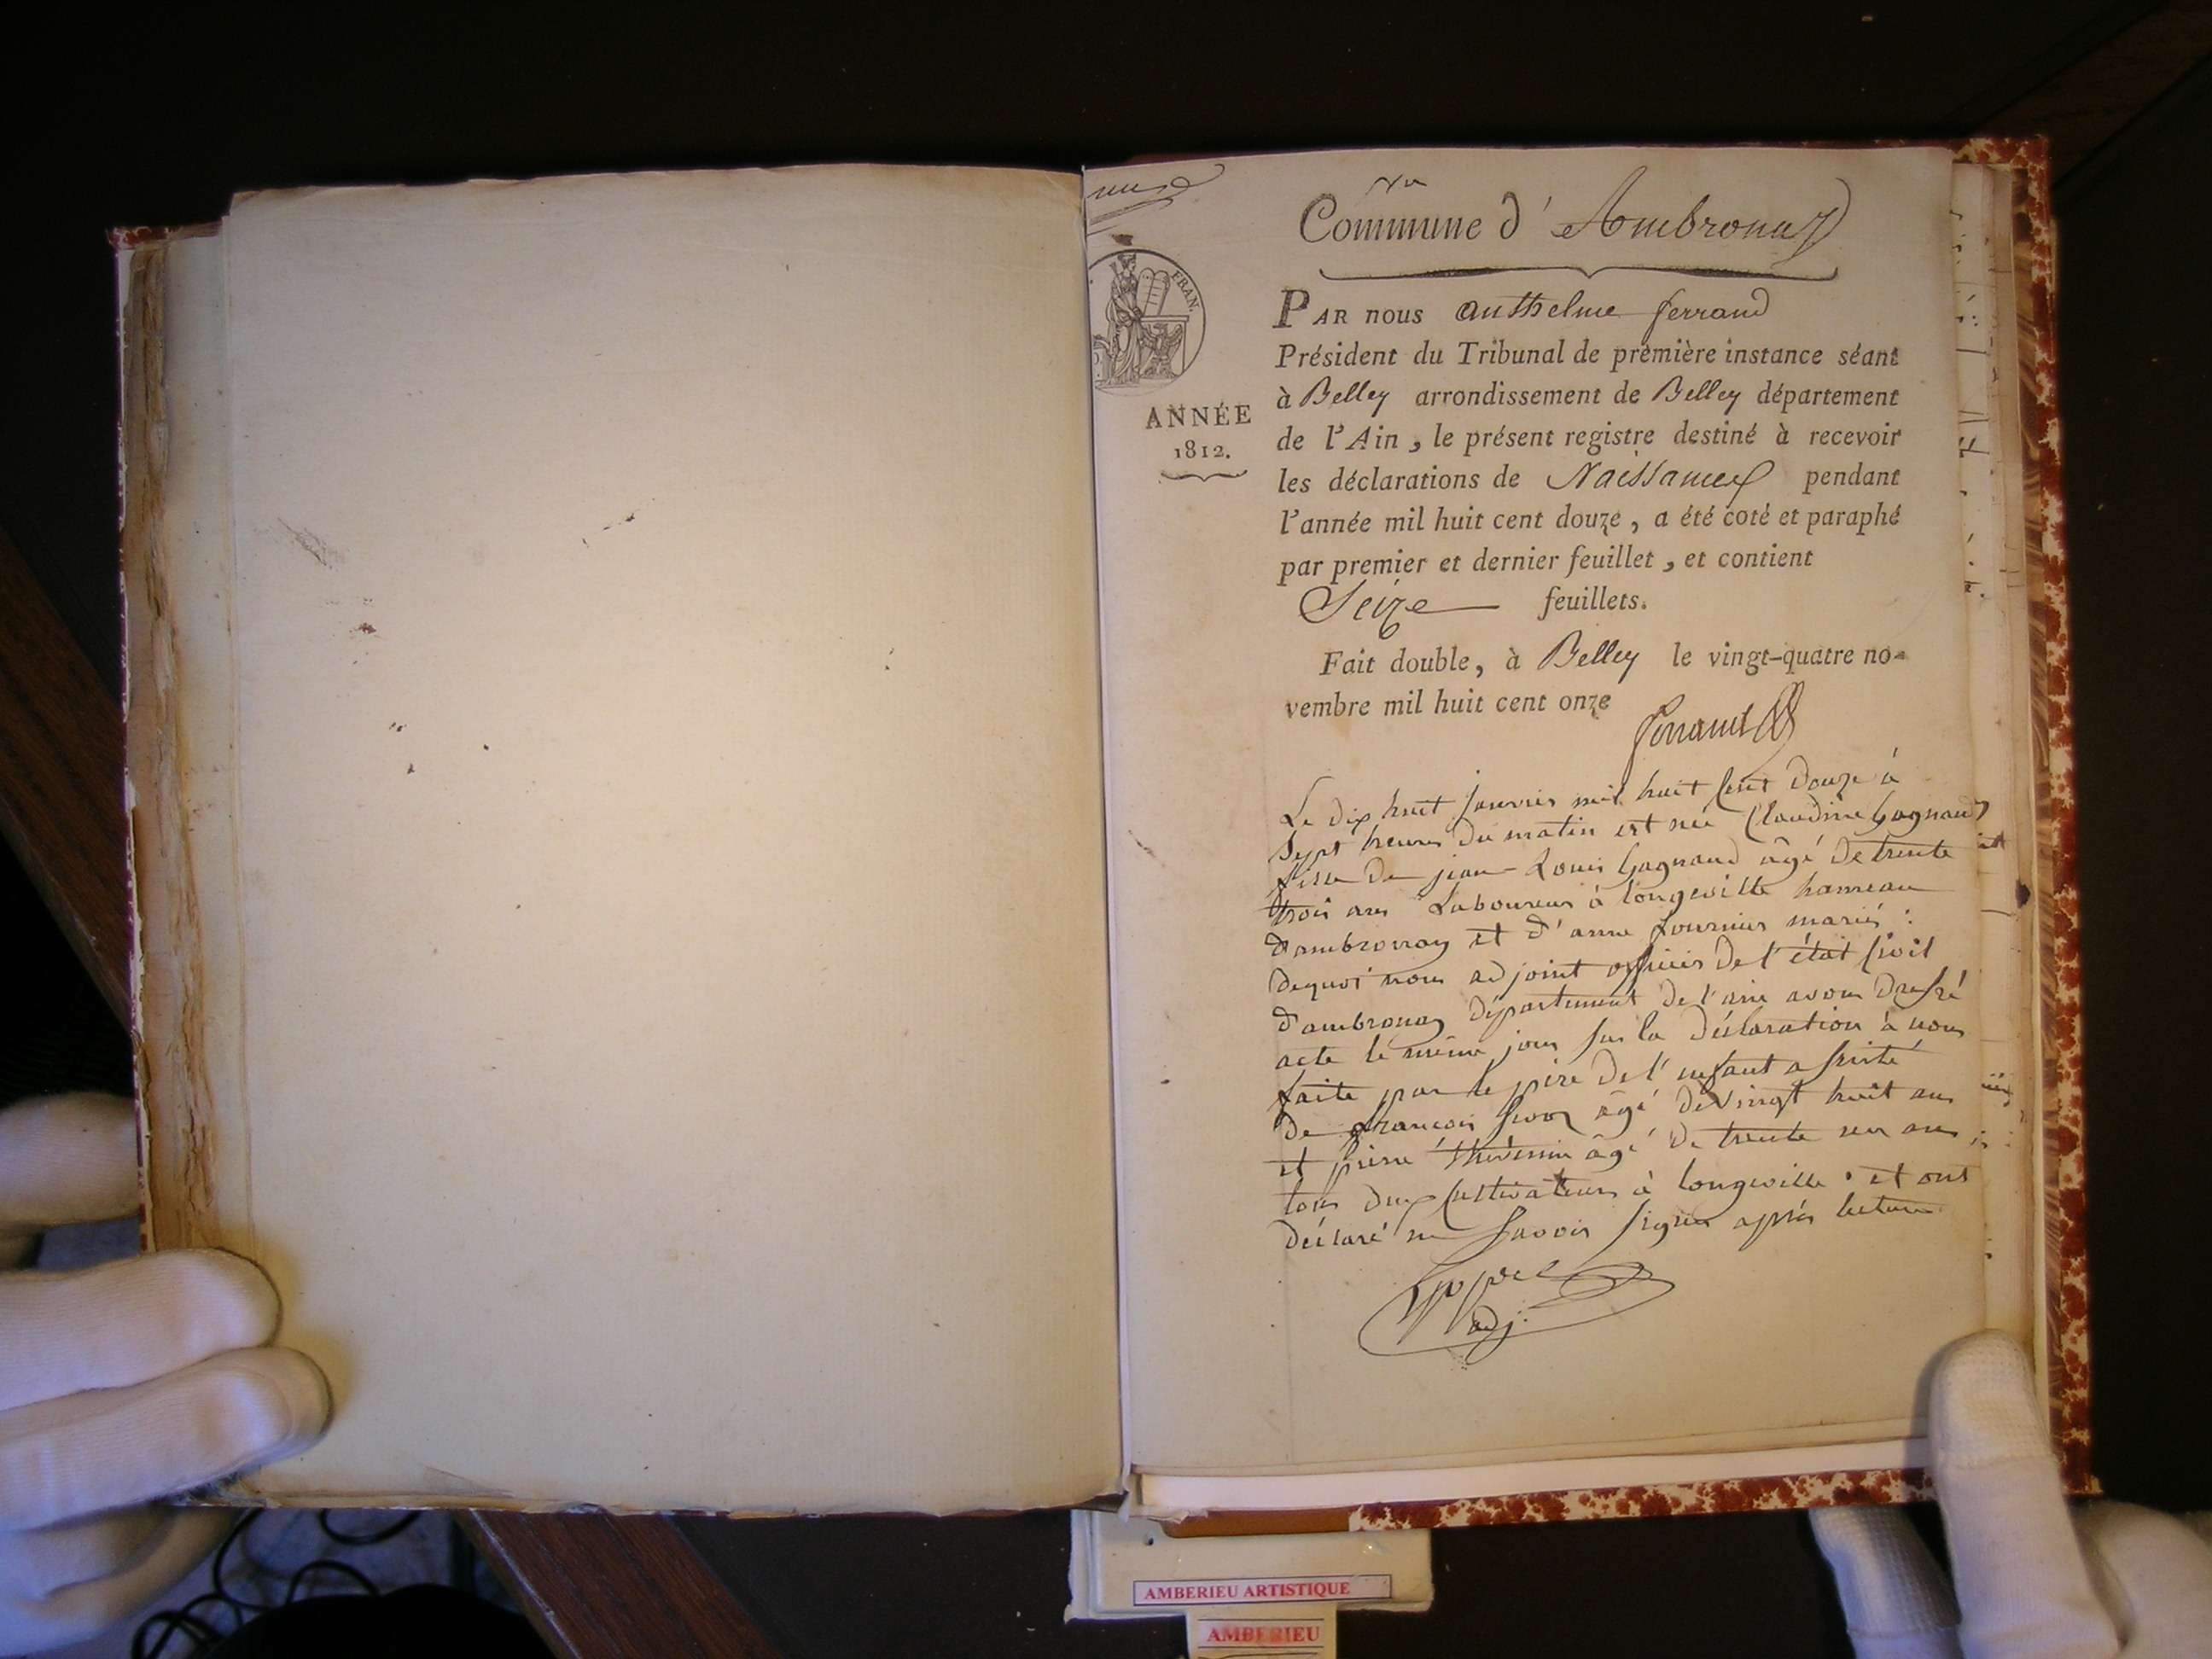 Commune d' Ambronay
FRAN.
PAR nous anthelme ferrand
Président du Tribunal de première instance séant
à Belley arrondissement de Belley département
ANNÉE
1812.
de l'Ain, le présent registre destiné à recevoir
les déclarations de Naissances pendant
l'année mil huit cent douze, a été coté et paraphé
par premier et dernier feuillet, et contient
Seize feuillets.
Fait double, à Belley le vingt-quatre no-
vembre mil huit cent onze
ferrand
Le dix huit janvier mil huit cent douze à
sept heures du matin est née Claudine Gagnaud
fille de jean-Louis Gagnaud âgé de trente
trois ans Laboureur à longeville hameau
d'ambronay et d'anne fournier mariés :
dequoi nous adjoint officier de l'état civil
d'ambronay département de l'ain avons dressé
acte le même jour sur la déclaration à nous
faite par le père de l'enfant assisté
de françois âgé de vingt huit ans
et pierre thévenin âgé de trente un ans
tous deux cultivateurs à longeville . et ont
déclaré ne savoir signer après lecture
adj.
AMBERIEU ARTISTIQUE
AMBERIEU